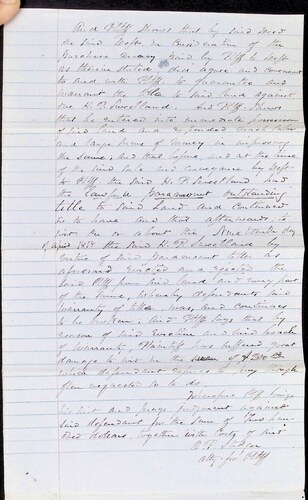 And Plff shows that by said deed
the said Defts in Consideration of the
Purchase money paid by Plff to Defts
as therein stated did agree and covenant
to and with Plff to guarantee and
warrant the title to said land against
one H. P. Sweetland. And Plff shows
that he entered into immediate possession
of said land and expended much labor
and large sums of money in improving
the same, and that before, and at the time
of the said sale and conveyance by Defts
to Plff the said H. P. Sweetland had
the lawful Paramount outstanding
title to said land and continued
so to have and that afterwards to
wit on or about the day
of April 1878 the said H. P. Sweetland by
virtue of said Paramount title as
aforesaid evicted and ejected the
said Plff from said land and every part
of the same, whereby defendants said
warranty of title was, and continues
to be broken. And Plff says that by
reason of said eviction and said breach
of warranty Plaintiff has suffered great
damage to wit in the sum of $300.00
which defendant refuses to pay though
often requested so to do.
Wherefore Plff brings
his suit and prays judgment against
said defendant for the Sum of Three hun-
dred dollars, together with Costs of suit
atty for Plff